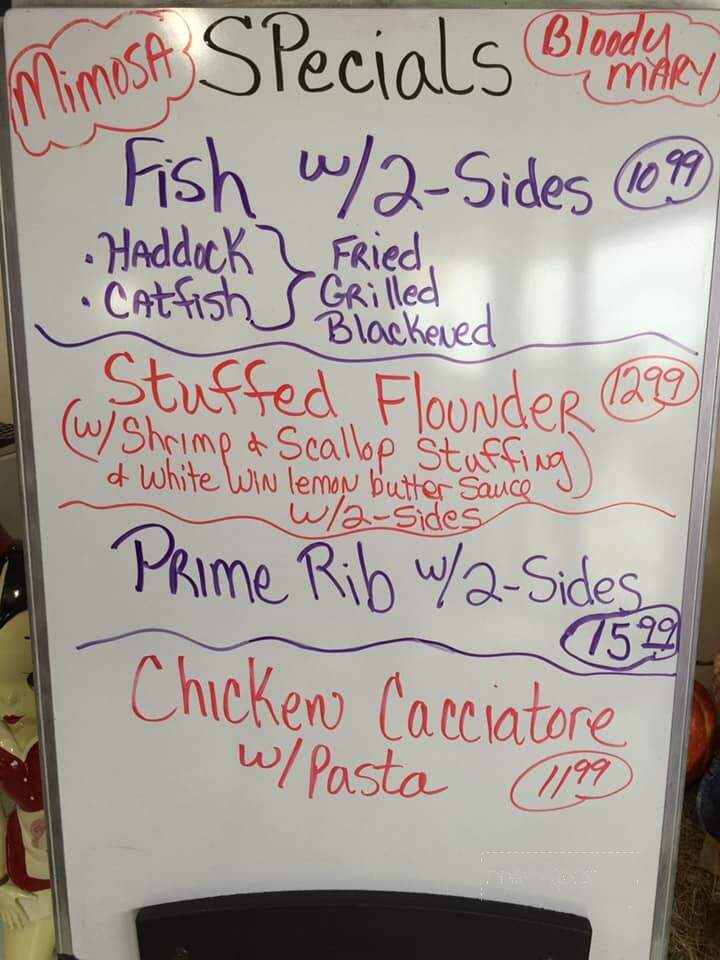 Mimosa
SPecials
Bloody
MARY
Fish w/2-Sides 10 99
• HAddock
• CAtfish
FRied
GRilled
Blackened
Stuffed Flounder 12 99
(w/Shrimp & Scallop Stuffing)
& White WiN lemon butter Sauce
w/2-Sides
PRime Rib w/2-Sides
15 99
Chicken Cacciatore
w/Pasta 11 99